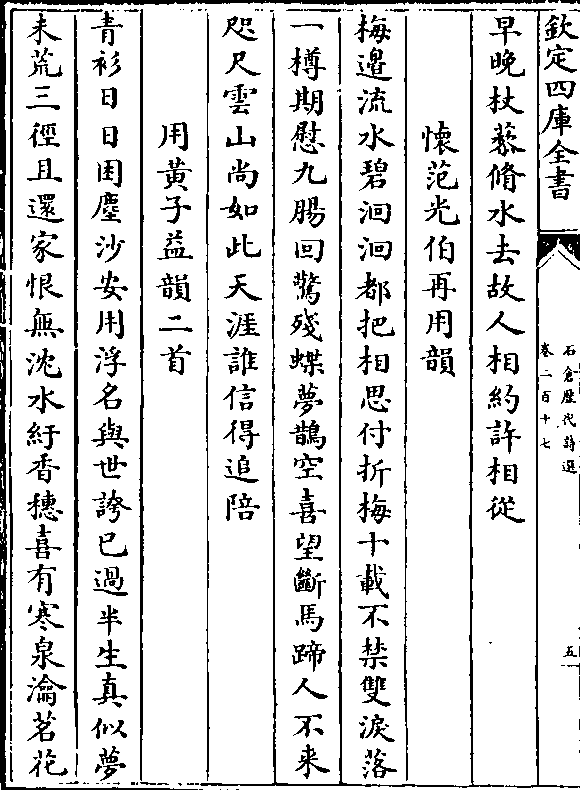 欽定四庫全書
石倉歷代詩選
卷二百十七
五
早晚杖藜脩水去故人相約許相從
懷范光伯再用韻
梅邉流水碧洄洄都把相思付折梅十載不禁雙淚落
一樽期慰九腸回驚殘蝶夢鵲空喜望斷馬蹄人不來
咫尺雲山尚如此天涯誰信得追陪
用黃子益韻二首
青衫日日困塵沙安用浮名與世誇已過半生真似夢
未荒三徑且還家恨無沈水紆香穗喜有寒泉瀹茗花